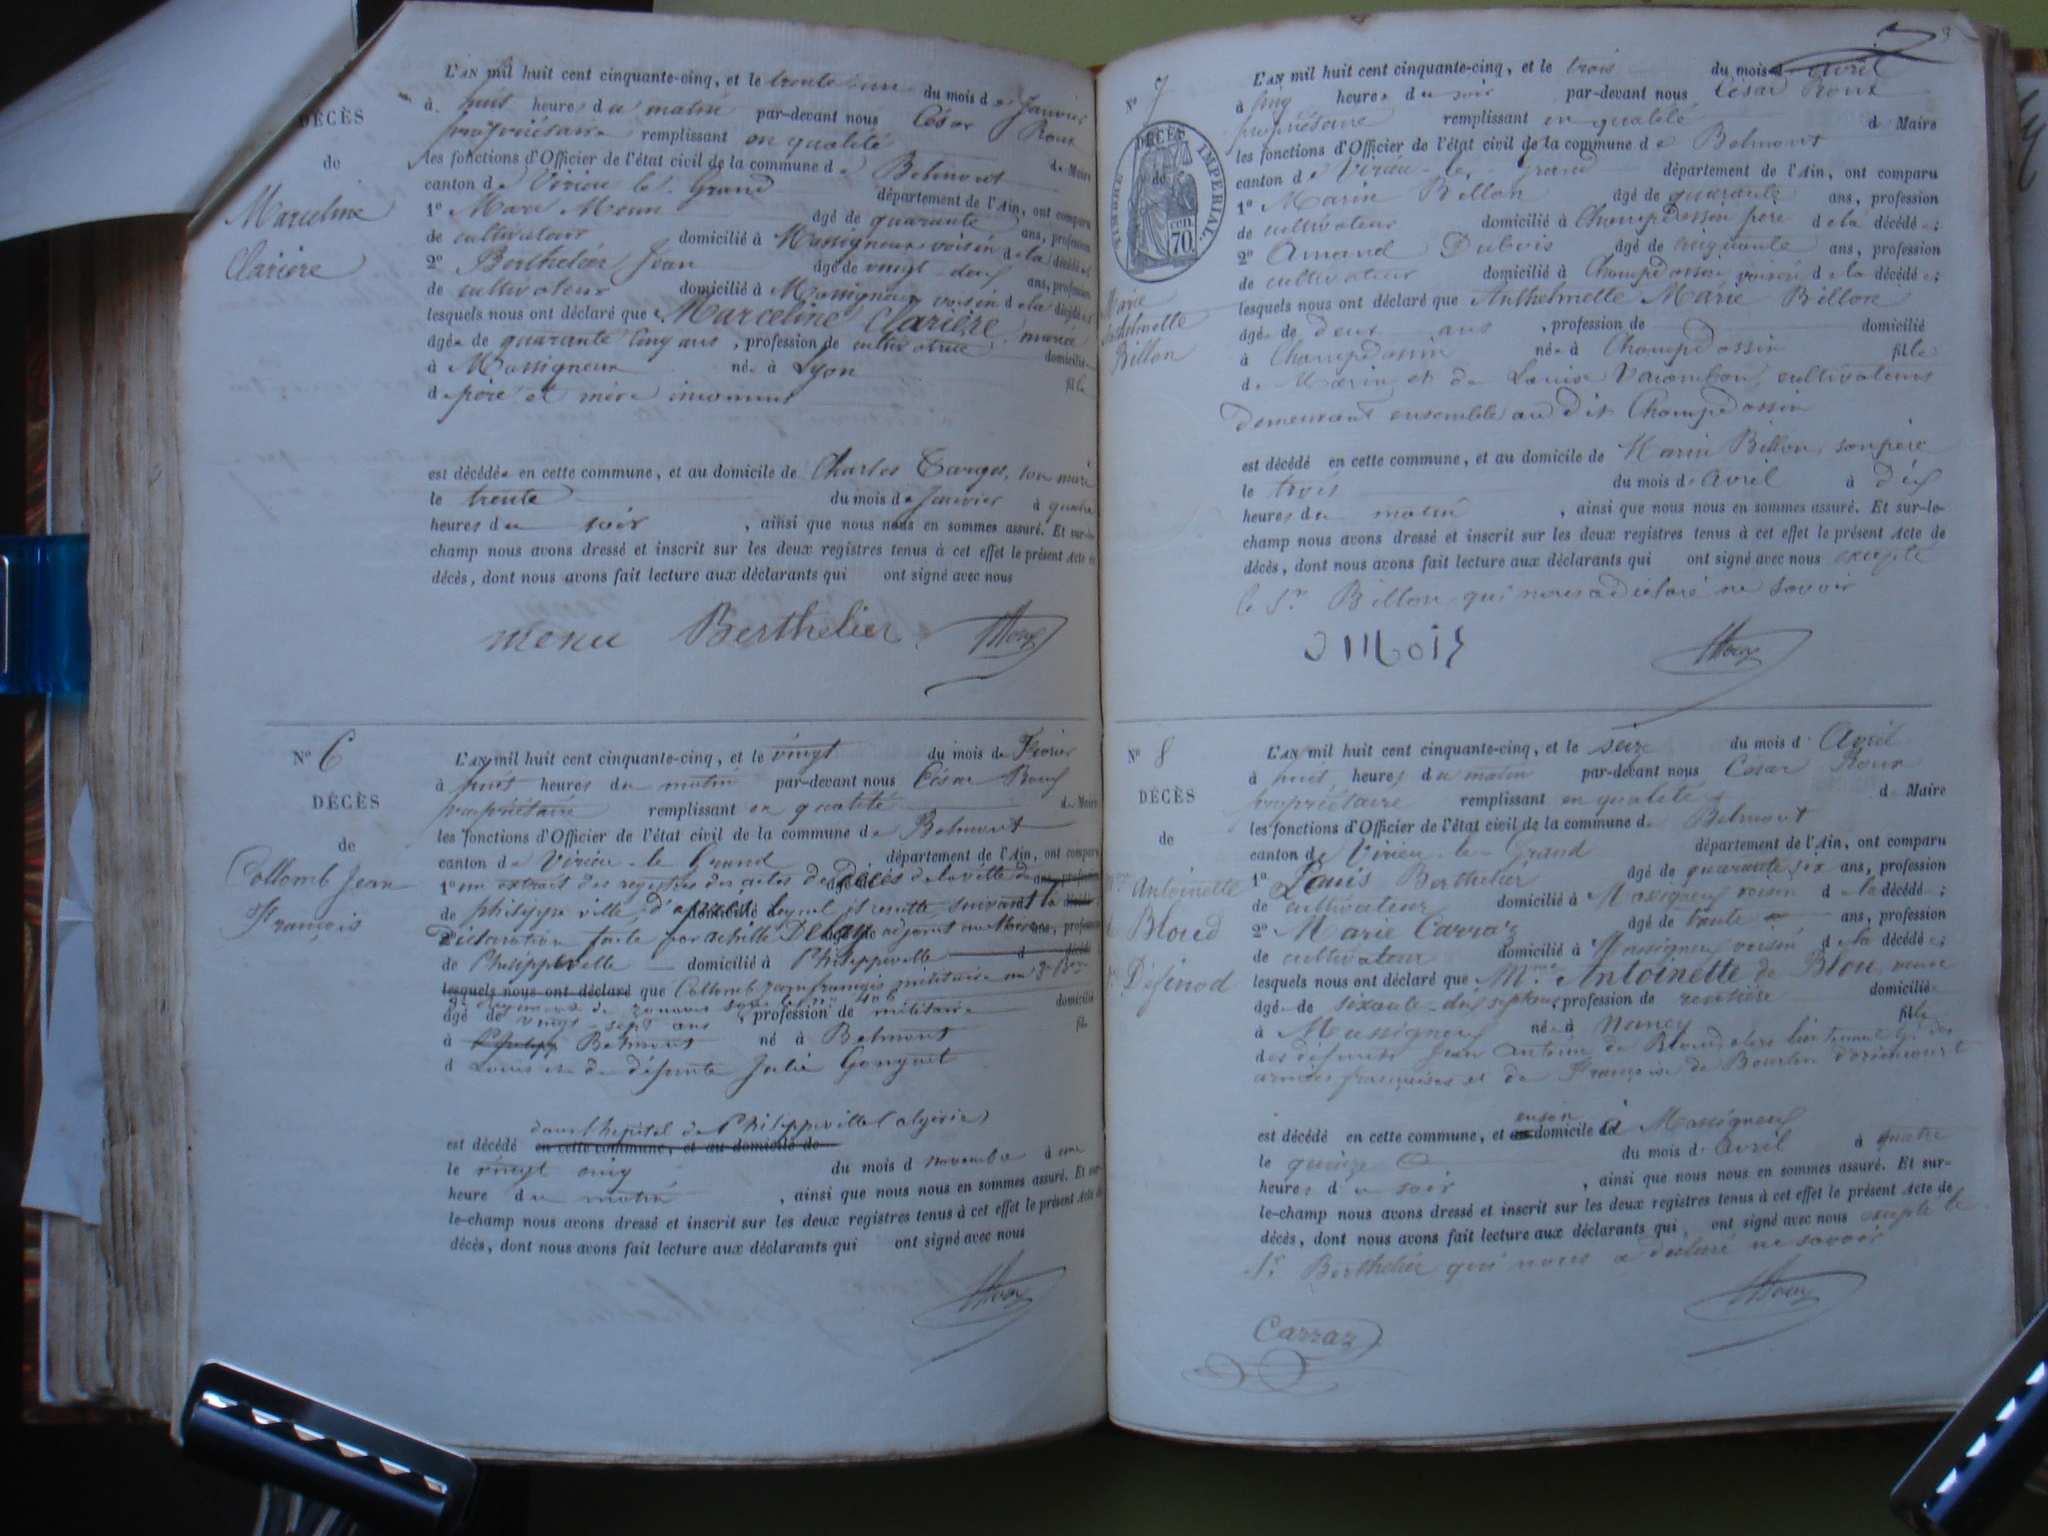 DÉCÈS
de
Marceline
Clarière
L'AN mil huit cent cinquante-cinq, et le trente un du mois de Janvier
à huit heures du matin par-devant nous César Roux
propriétaire remplissant en qualité de Maire
les fonctions d'Officier de l'état civil de la commune de Belmont
canton de Virieu le Grand département de l'Ain, ont comparu
1º Marc âgé de quarante ans, profession
de cultivateur domicilié à Massigneux voisin de la décédée
2º Berthelier Jean âgé de vingt-deux ans, profession
de cultivateur domicilié à Massigneux voisin de la décédée
lesquels nous ont déclaré que Marceline Clarière mariée
âgée de quarante cinq ans, profession de cultivatrice domiciliée
à Massigneux née à Lyon fille
de père et mère inconnus
est décédée en cette commune, et au domicile de Charles son mari
le trente du mois de Janvier à quatre
heures du soir, ainsi que nous nous en sommes assuré. Et sur-le-
champ nous avons dressé et inscrit sur les deux registres tenus à cet effet le présent Acte de
décès, dont nous avons fait lecture aux déclarants qui ont signé avec nous
menu Berthelier Roux
Nº 6
DÉCÈS
de
Collomb Jean
François
L'AN mil huit cent cinquante-cinq, et le vingt du mois de Février
à huit heures du matin par-devant nous César Roux
propriétaire remplissant en qualité de Maire
les fonctions d'Officier de l'état civil de la commune de Belmont
canton de Virieu-le Grand département de l'Ain, ont comparu
1º un extrait des registres des actes de Décès de la ville de
de philippe ville, d'après lequel il résulte suivant la
Déclaration faite par achille Delay adjoint au Maire
de Philippeville domicilié à Philippeville
lesquels nous ont déclaré que Collomb Jean françois militaire au 3e
régiment de zouaves
âgé de vingt-sept ans, profession de militaire domicilié
à Belmont né à Belmont fils
d Louis et de défunte Julie Gonguet
dans l'hôpital de Philippeville (algérie)
est décédé en cette commune, et au domicile de
le vingt cinq du mois d novembre à une
heure du matin, ainsi que nous nous en sommes assuré. Et sur-
le-champ nous avons dressé et inscrit sur les deux registres tenus à cet effet le présent Acte de
décès, dont nous avons fait lecture aux déclarants qui ont signé avec nous
Roux
Nº 7
DÉCÈS
de
TIMBRE IMPÉRIAL.
70 cen
Marie
Anthelmette
Billon
L'AN mil huit cent cinquante-cinq, et le trois du mois d avril
à cinq heures du soir par-devant nous César Roux
propriétaire remplissant en qualité d Maire
les fonctions d'Officier de l'état civil de la commune de Belmont
canton de Virieu-le-grand département de l'Ain, ont comparu
1º Marin Billon âgé de quarante ans, profession
de cultivateur domicilié à Champdossin père de la décédée;
2º Amand Dubois âgé de cinquante ans, profession
de cultivateur domicilié à Champdossin voisin de la décédée;
lesquels nous ont déclaré que Anthelmette Marie Billon
âgée de deux ans, profession de domicilié
à Champdossin née à Champdossin fille
de Marin et de Louise Varambon, cultivateurs
demeurant ensemble au dit Champdossin
est décédé en cette commune, et au domicile de Marin Billon, son père
le trois du mois d'avril à dix
heures du matin, ainsi que nous nous en sommes assuré. Et sur-le-
champ nous avons dressé et inscrit sur les deux registres tenus à cet effet le présent Acte de
décès, dont nous avons fait lecture aux déclarants qui ont signé avec nous excepté
le Sr Billon qui nous a déclaré ne savoir
Roux
Nº 8
DÉCÈS
de
Antoinette
Bloud
Désinod
L'AN mil huit cent cinquante-cinq, et le seize du mois d'Avril
à huit heures du matin par-devant nous César Roux
propriétaire remplissant en qualité d Maire
les fonctions d'Officier de l'état civil de la commune de Belmont
canton de Virieu-le-Grand département de l'Ain, ont comparu
1º Louis Berthelier âgé de quarante six ans, profession
de cultivateur domicilié à Massigneux voisin de la décédée;
2º Marie Carraz âgé de trente ans, profession
de cultivateur domicilié à Massigneux voisin de la décédée;
lesquels nous ont déclaré que Mme Antoinette de Blou veuve
âgée de soixante-dix sept ans, profession de rentière domiciliée
à Massigneux née à Nancy fille
des défunts Jean Antoine de Bloud alors lieutenant Gl des
armées françaises et de Françoise de Bourlon
est décédé en cette commune, et en son domicile à Massigneux
le quinze du mois d'avril à quatre
heures du soir, ainsi que nous nous en sommes assuré. Et sur-
le-champ nous avons dressé et inscrit sur les deux registres tenus à cet effet le présent Acte de
décès, dont nous avons fait lecture aux déclarants qui ont signé avec nous excepté le
Sr Berthelier qui nous a déclaré ne savoir
Roux
Carraz